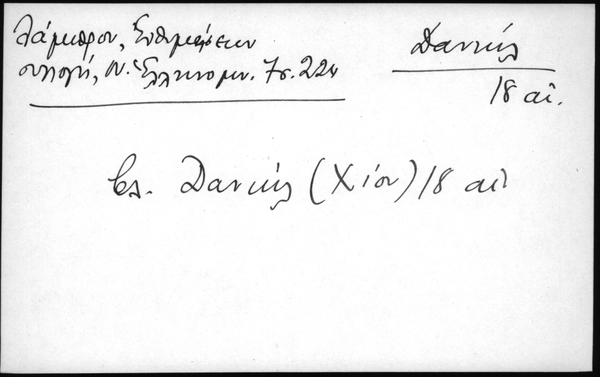 Λάμπρου, Ἐνθυμήσεων
συλλογή, Ν. Ἑλληνομν. 7ς. 224
Δανιήλ
18 αἰ.
βλ. Δανιήλ (Χίου) 18 αἰ